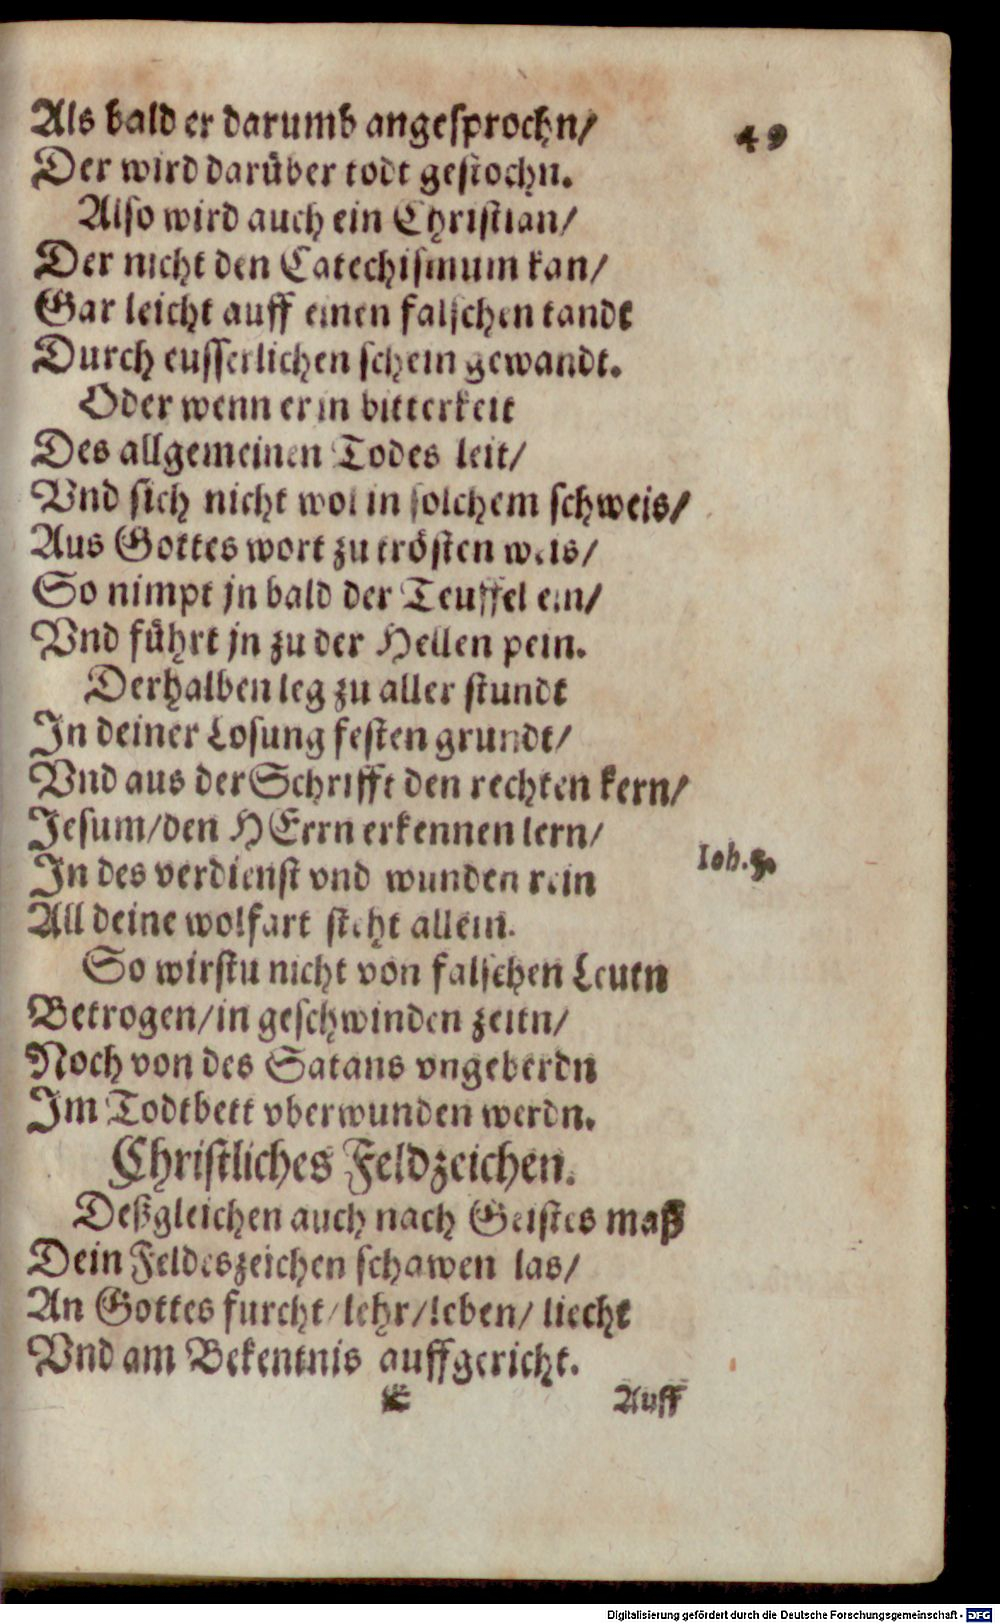 49
Als bald er darumb angesprochn/
Der wird darüber todt gestochn.
Also wird auch ein Christian/
Der nicht den Catechismum kan/
Gar leicht auff einen falschen tandt
Durch eusserlichen schein gewandt.
Oder wenn er in bitterkeit
Des allgemeinen Todes leit/
Vnd sich nicht wol in solchem schweis/
Aus Gottes wort zu trösten weis/
So nimpt jn bald der Teuffel ein/
Vnd führt jn zu der Hellen pein.
Derhalben leg zu aller stundt
In deiner Losung festen grundt/
Vnd aus der Schrifft den rechten kern/
Jesum/den HErrn erkennen lern/
In des verdienst vnd wunden rein
All deine wolfart steht allein.
Ioh.5.
So wirstu nicht von falschen Leutn
Betrogen/in geschwinden zeitn/
Noch von des Satans vngeberdn
Im Todtbett vberwunden werdn.
Christliches Feldzeichen.
Deßgleichen auch nach Geistes maß
Dein Feldeszeichen schawen las/
An Gottes furcht/lehr/leben/liecht
Vnd am Bekentnis auffgericht.
E Auff
Digitalisierung gefördert durch die Deutsche Forschungsgemeinschaft - DFG